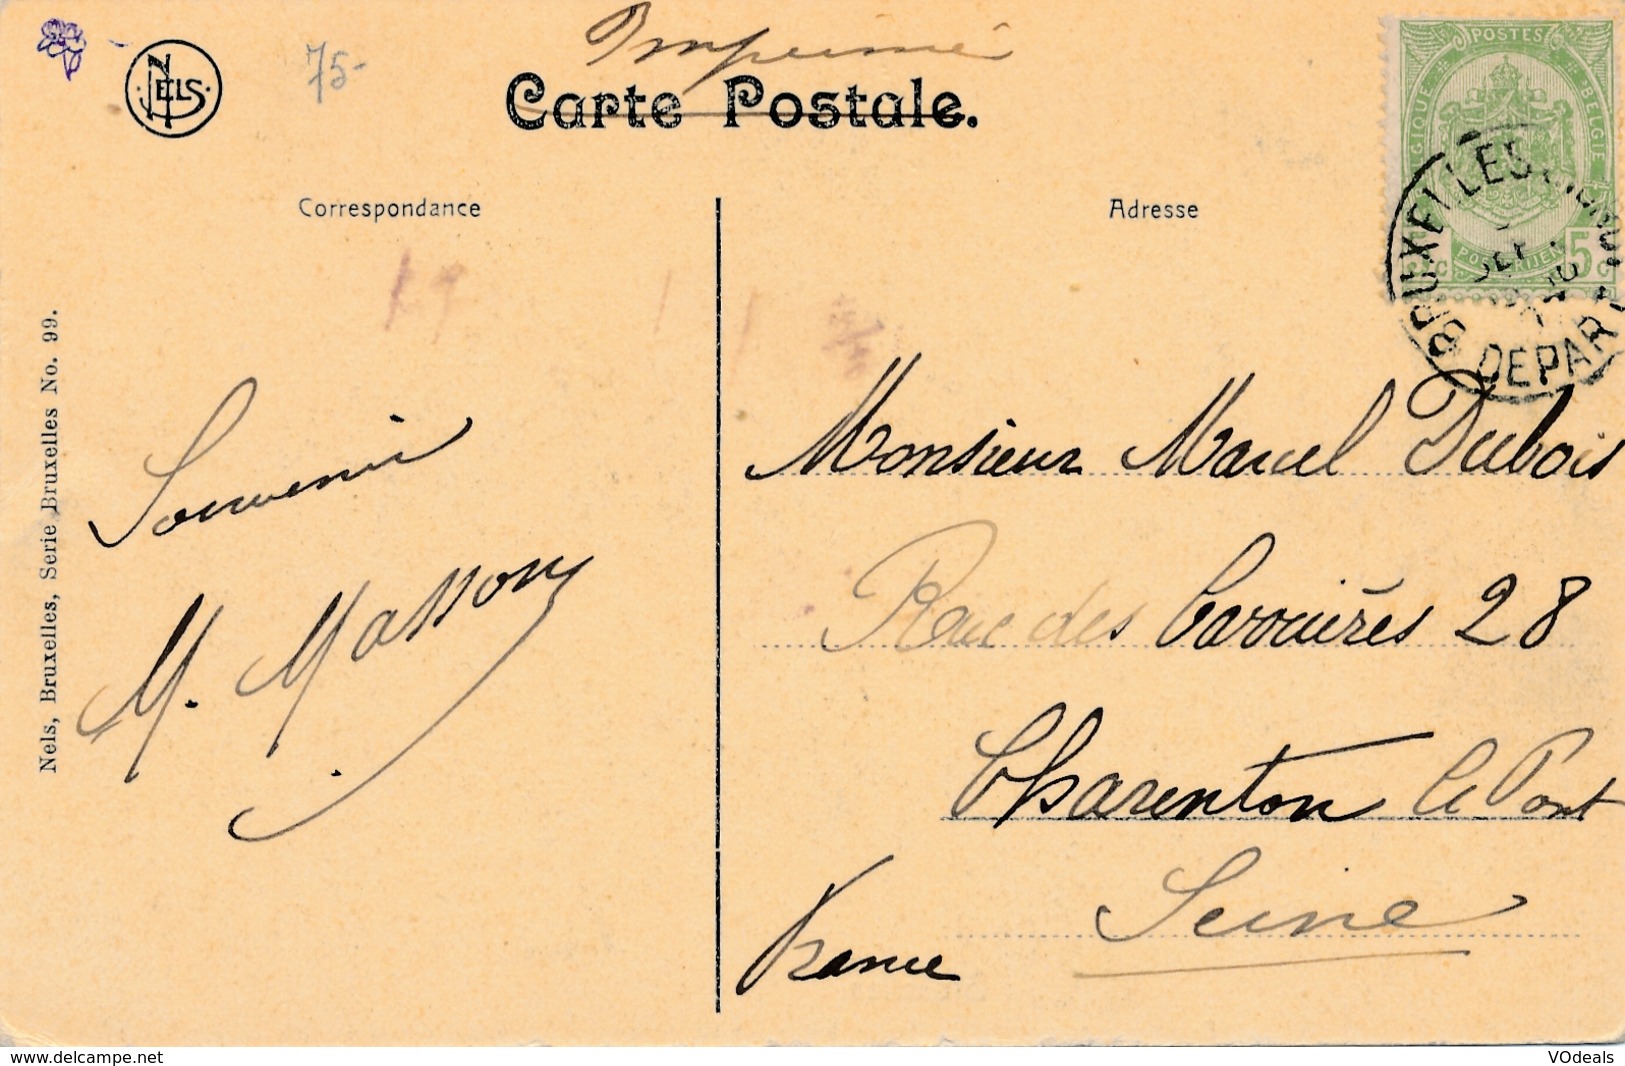 Imprimé
NELS
75-
Carte Postale.
POSTES
BELGIQUE
BELGIE
POSTERIJEN
5c
BRUXELLES
DEPART
Correspondance
Adresse
Nels, Bruxelles, Serie Bruxelles No. 99.
Souvenir
M. Massony
Monsieur Marcel Dubois
Rue des Carrières 28
Charenton le Pont
Seine
France
www.delcampe.net
VOdeals